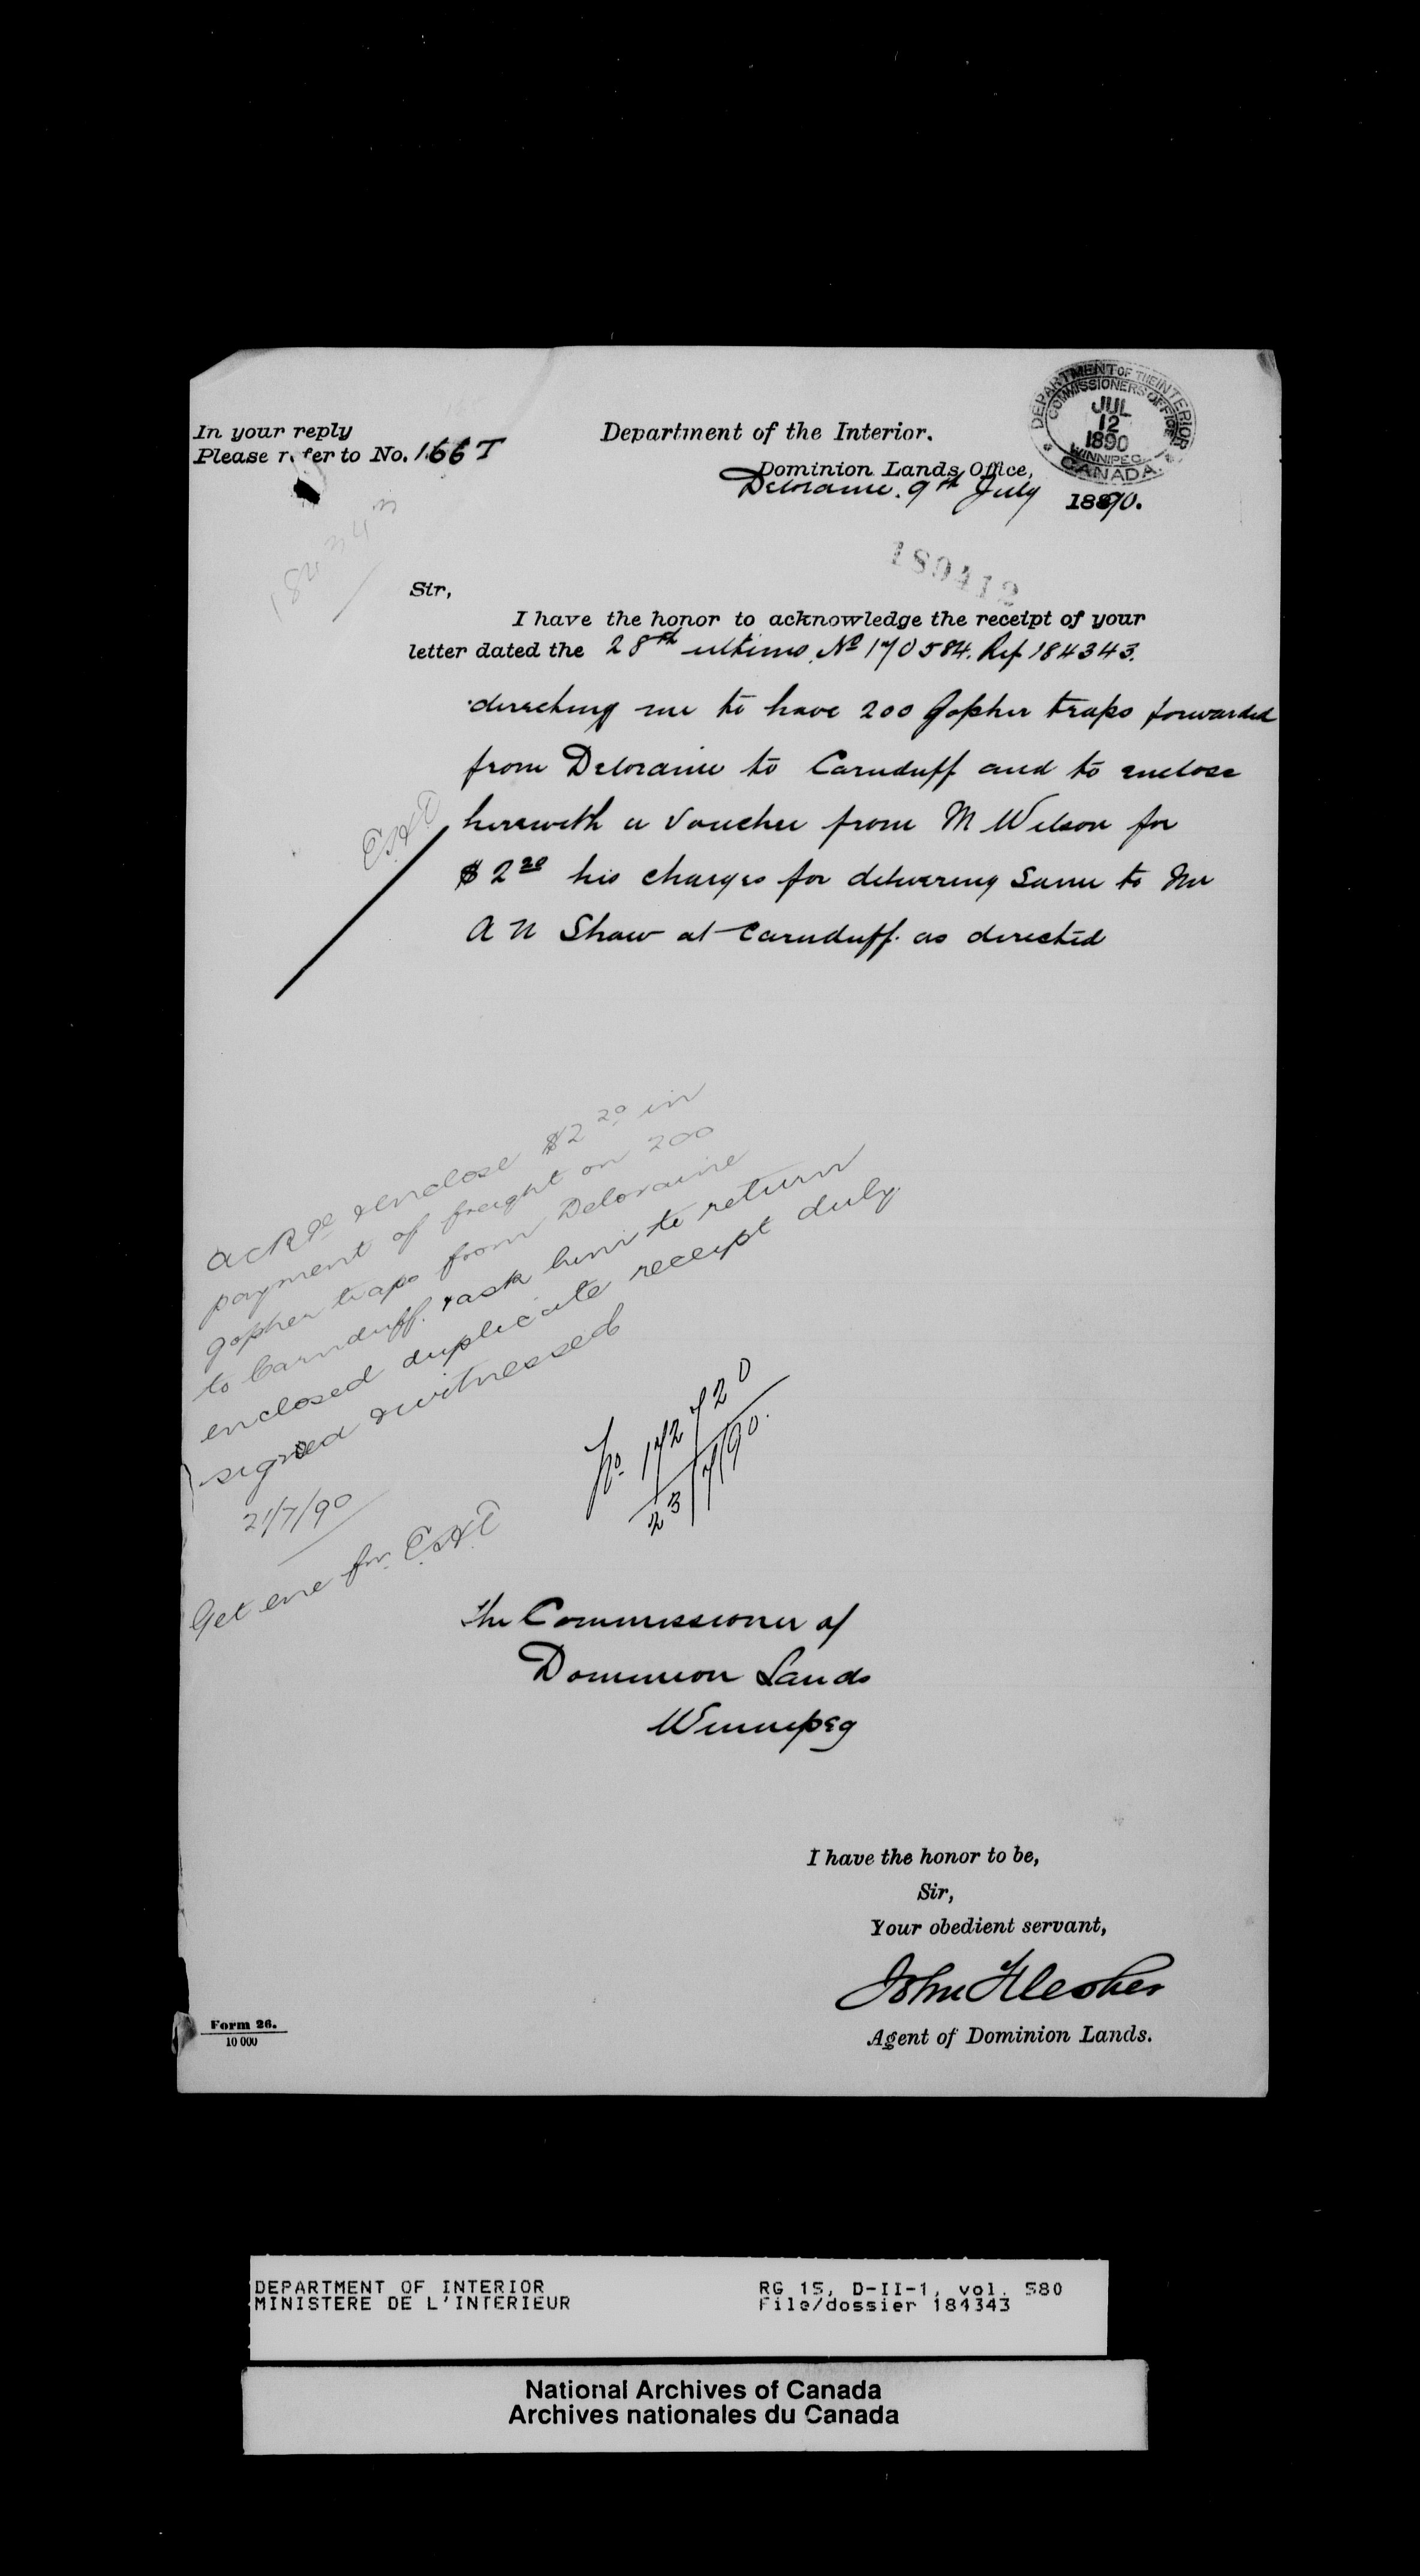 In your reply
Please refer to No. 1667
Department of the Interior.
DEPARTMENT OF THE INTERIOR
COMMISSIONERS OFFICE
JUL
12
1890
WINNIPEG
CANADA
Dominion Lands Office,
Deloraine. 9th July 1890.
184343
189412
Sir,
I have the honor to acknowledge the receipt of your
letter dated the 28th ultimo, No 170584. Ref 184343.
directing me to have 200 Gopher traps forwarded
from Deloraine to Carnduff and to enclose
herewith a Voucher from M Wilson for
$2 20 his charges for delivering Same to Mr
A N Shaw at Carnduff. as directed
Ack & enclose $2 20 in
payment of freight on 200
gopher traps from Deloraine
to Carnduff. & ask him to return
enclosed duplicate receipt duly
signed & witnessed
21/7/90
No. 172720
23/7/90.
Get one for
The Commissioner of
Dominion Lands
Winnipeg
I have the honor to be,
Sir,
Your obedient servant,
John Flesher
Agent of Dominion Lands.
Form 26.
10 000
DEPARTMENT OF INTERIOR
MINISTERE DE L'INTERIEUR
RG 15, D-II-1, vol. 580
File/dossier 184343
National Archives of Canada
Archives nationales du Canada